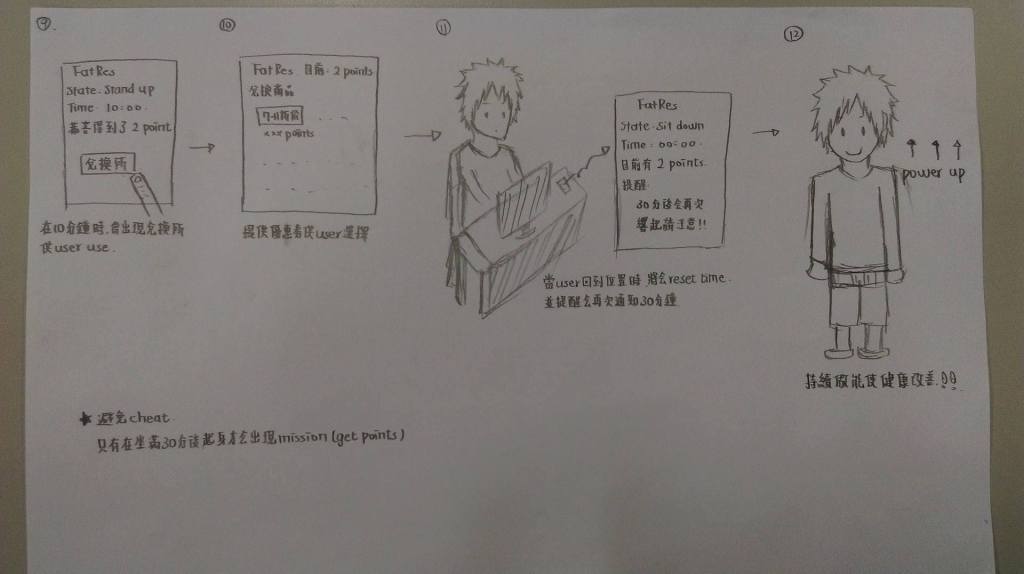 ⑨
FatRes
State. Stand up
Time. 10:00.
恭喜得到了 2 point
兌換所
在10分鐘時,會出現兌換所
供user use.
⑩
FatRes 目前. 2 points
兌換商品
xxx points
提供優惠卷供user選擇
⑪
FatRes
State. Sit down
Time : 00:00.
目前有 2 points.
提醒.
30分後會再次
響起請注意!!
當user回到位置時 將會reset time.
並提醒會再次通知30分鐘
⑫
power up
持續做能使健康改善.!!
★ 避免cheat.
只有在坐滿30分後起身才會出現mission (get points)